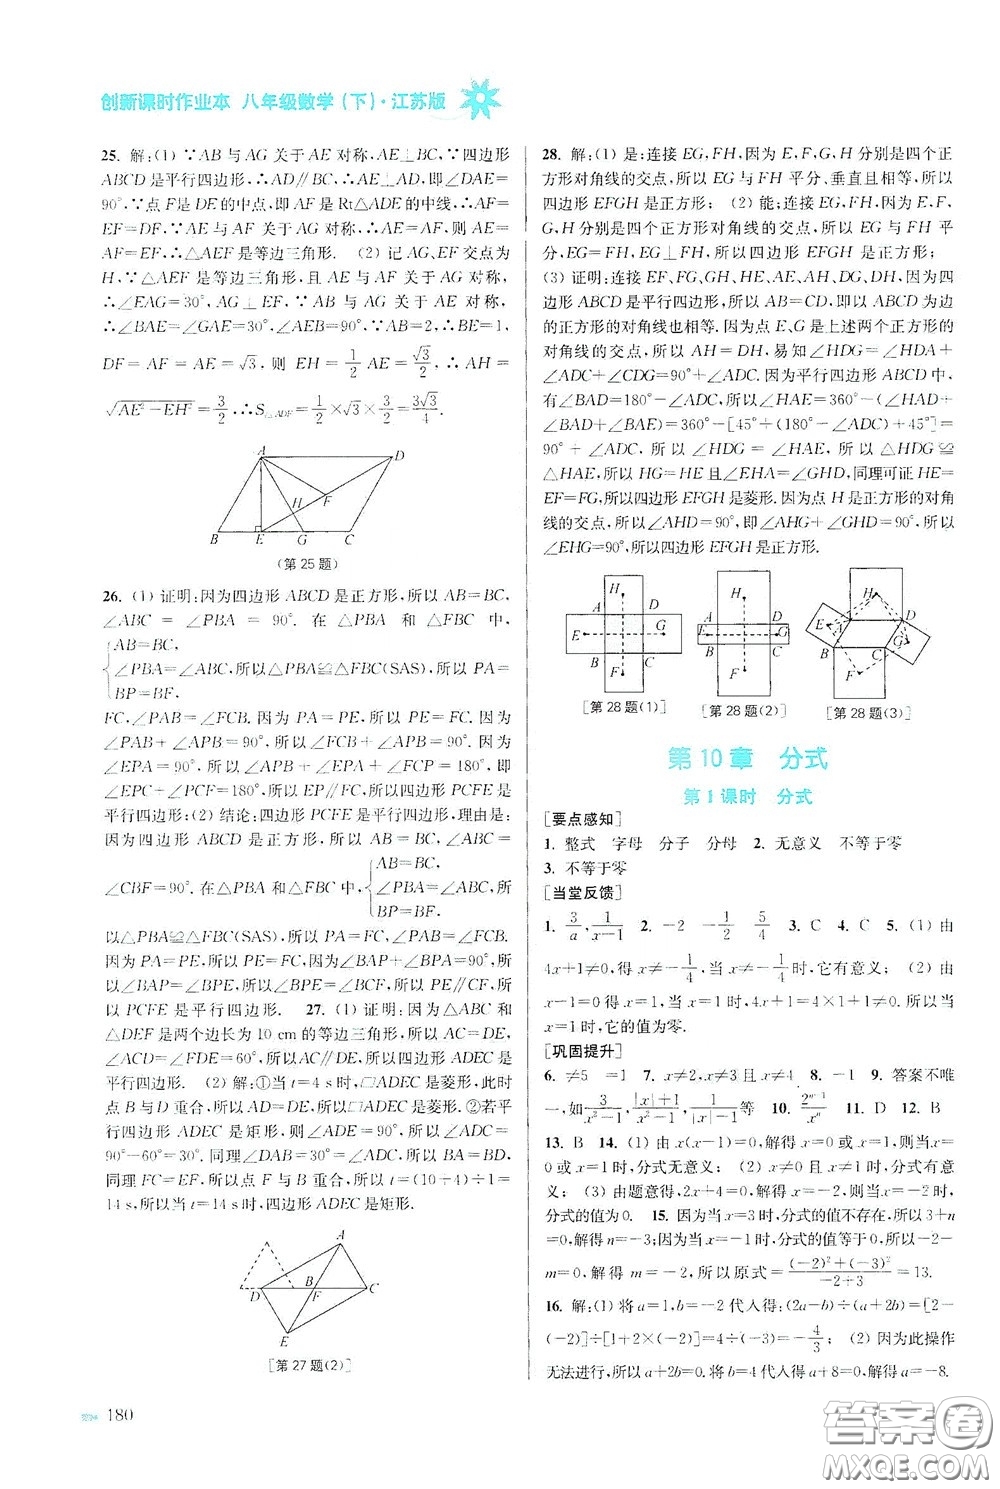 创新课时作业本 八年级数学(下)·江苏版
25. 解:(1) ∵AB 与 AG 关于 AE 对称,∴AE⊥BC,∵四边形
ABCD 是平行四边形,∴AD∥BC,∴AE⊥AD,即∠DAE=
90°,∵点 F是 DE 的中点,即 AF 是 Rt△ADE 的中线,∴AF=
EF=DF,∵AE 与 AF 关于 AG 对称,∴AE=AF,则 AE=
AF=EF,∴△AEF 是等边三角形. (2) 记 AG、EF 交点为
H,∵△AEF 是等边三角形,且 AE 与 AF 关于 AG 对称,
∴∠EAG=30°,AG⊥EF,∵AB 与 AG 关于 AE 对称,
∴∠BAE=∠GAE=30°,∠AEB=90°,∵AB=2,∴BE=1,
DF=AF=AE=√3,则 EH=1/2 AE=√3/2,∴AH=
√(AE²-EH²)=3/2,∴S△ADF=1/2×√3×3/2=3√3/4.
A D F H B E G C
(第 25 题)
26. (1) 证明:因为四边形 ABCD 是正方形,所以 AB=BC,
∠ABC=∠PBA=90°. 在 △PBA 和 △FBC 中,
AB=BC,
∠PBA=∠ABC,所以△PBA≌△FBC(SAS),所以 PA=
BP=BF.
FC,∠PAB=∠FCB. 因为 PA=PE,所以 FC=PE. 因为
∠PAB+∠APB=90°,所以∠FCB+∠APB=90°. 因为
∠EPA=90°,所以∠APB+∠EPA+∠FCP=180°,即
∠EPC+∠PCF=180°,所以 EP∥FC,所以四边形 PCFE 是
平行四边形;(2) 结论:四边形 PCFE 是平行四边形,理由是:
因为四边形 ABCD 是正方形,所以 AB=BC,∠ABC=
∠CBF=90°. 在△PBA 和△FBC 中, AB=BC, ∠PBA=∠ABC, BP=BF. 所
以△PBA≌△FBC(SAS),所以 PA=FC,∠PAB=∠FCB.
因为 PA=PE,所以 FC=PE. 因为∠BAP+∠BPA=90°,
∠EPA=90°,所以∠BAP=∠BPE,所以 PE∥CF. 所
以 PCFE 是平行四边形. 27. (1) 证明:因为△ABC 和
△DEF 是两个边长为 10 cm 的等边三角形,所以 AC=DE,
∠ACD=∠FDE=60°,所以AC∥DE,所以四边形 ADEC 是
平行四边形. (2) 解:①当 t=4 s 时,□ADEC是菱形,此时
点 B 与 D 重合,所以 AD=DE,所以□ADEC 是菱形.②若平
行四边形 ADEC 是矩形,则∠ADE=90°,所以∠ADC=
90°-60°=30°. 同理∠DAB=30°=∠ADC,所以 BA=BD.
同理 FC=EF,所以点 F 与 B 重合,所以 t=(10+4)÷1=
14 s,所以当 t=14 s 时,四边形 ADEC 是矩形.
A D B F C E
[第 27 题(2)]
180
28. 解:(1) 是:连接 EG,FH,因为 E,F,G,H 分别是四个正
方形对角线的交点,所以 EG 与 FH 平分、垂直且相等,所以
四边形 EFGH 是正方形; (2) 能;连接 EG,FH,因为 E,F,
G,H 分别是四个正方形对角线的交点,所以 EG 与 FH 平
分,EG=FH,EG⊥FH,所以四边形 EFGH 是正方形;
(3) 证明:连接 EF,FG,GH,HE,AE,AH,DG,DH,因为四边
形 ABCD 是平行四边形,所以 AB=CD,即以 ABCD 为边
的正方形的对角线也相等. 因为点 E、G 是上述两个正方形的
对角线的交点,所以 AH=DH,易知∠HDG=∠HDA+
∠ADC+∠CDG=90°+∠ADC. 因为平行四边形 ABCD 中,
有∠BAD=180°-∠ADC,所以∠HAE=360°-(∠HAD+
∠BAD+∠BAE)=360°-[45°+(180°-∠ADC)+45°]=
90°+∠ADC,所以∠HDG=∠HAE,所以△HDG≌
△HAE,所以 HG=HE 且∠EHA=∠GHD,同理可证 HE=
EF=FG,所以四边形 EFGH 是菱形. 因为点 H 是正方形的对角
线的交点,所以∠AHD=90°,即∠AHG+∠GHD=90°,所以
∠EHG=90°,所以四边形 EFGH 是正方形.
H A D E G B C F
[第 28 题(1)]
H A D E G B C F
[第 28 题(2)]
H A D E G B C F
[第 28 题(3)]
第 10 章 分式
第 1 课时 分式
[要点感知]
1. 整式 字母 分子 分母 2. 无意义 不等于零
3. 不等于零
[当堂反馈]
1. 3/a,1/(x-1) 2. -2 -1/2 5/4 3. C 4. C 5. (1) 由
4x+1≠0,得 x≠-1/4,当 x≠-1/4 时,它有意义; (2) 由
x-1=0,得 x=1,当 x=1 时,4x+1=4×1+1≠0. 所以当
x=1 时,它的值为零.
[巩固提升]
6. ≠5 =1 7. x≠2 且 x≠4 8. -1 9. 答案不唯
一,如 3/(x²-1),(|x|+1)/(x²-1),1/(|x|-1)等 10. 2ⁿ⁻¹/xⁿ 11. D 12. B
13. B 14. (1) 由 x(x-1)=0,解得 x=0 或 x=1,则当 x=0
或 x=1 时,分式无意义; (2) x≠0 且 x≠1 时,分式有意
义; (3) 由题意得,2x+4=0,解得 x=-2,则当 x=-2 时,
分式的值为 0. 15. 因为当 x=3 时,分式的值不存在,所以 3+n
=0,解得 n=-3;因为当 x=-2 时,分式的值等于 0,所以-2-
m=0,解得 m=-2,所以原式=((-2)²+(-3)²)/(-2+3)=13.
16. 解:(1) 将 a=1,b=-2 代入得:(2a-b)÷(a+2b)=[2-
(-2)]÷[1+2×(-2)]=-4/3; (2) 因为此操作
无法进行,所以 a+2b=0. 将 b=4 代入得 a+8=0. 解得 a=-8.
答案圈
MXQE.COM